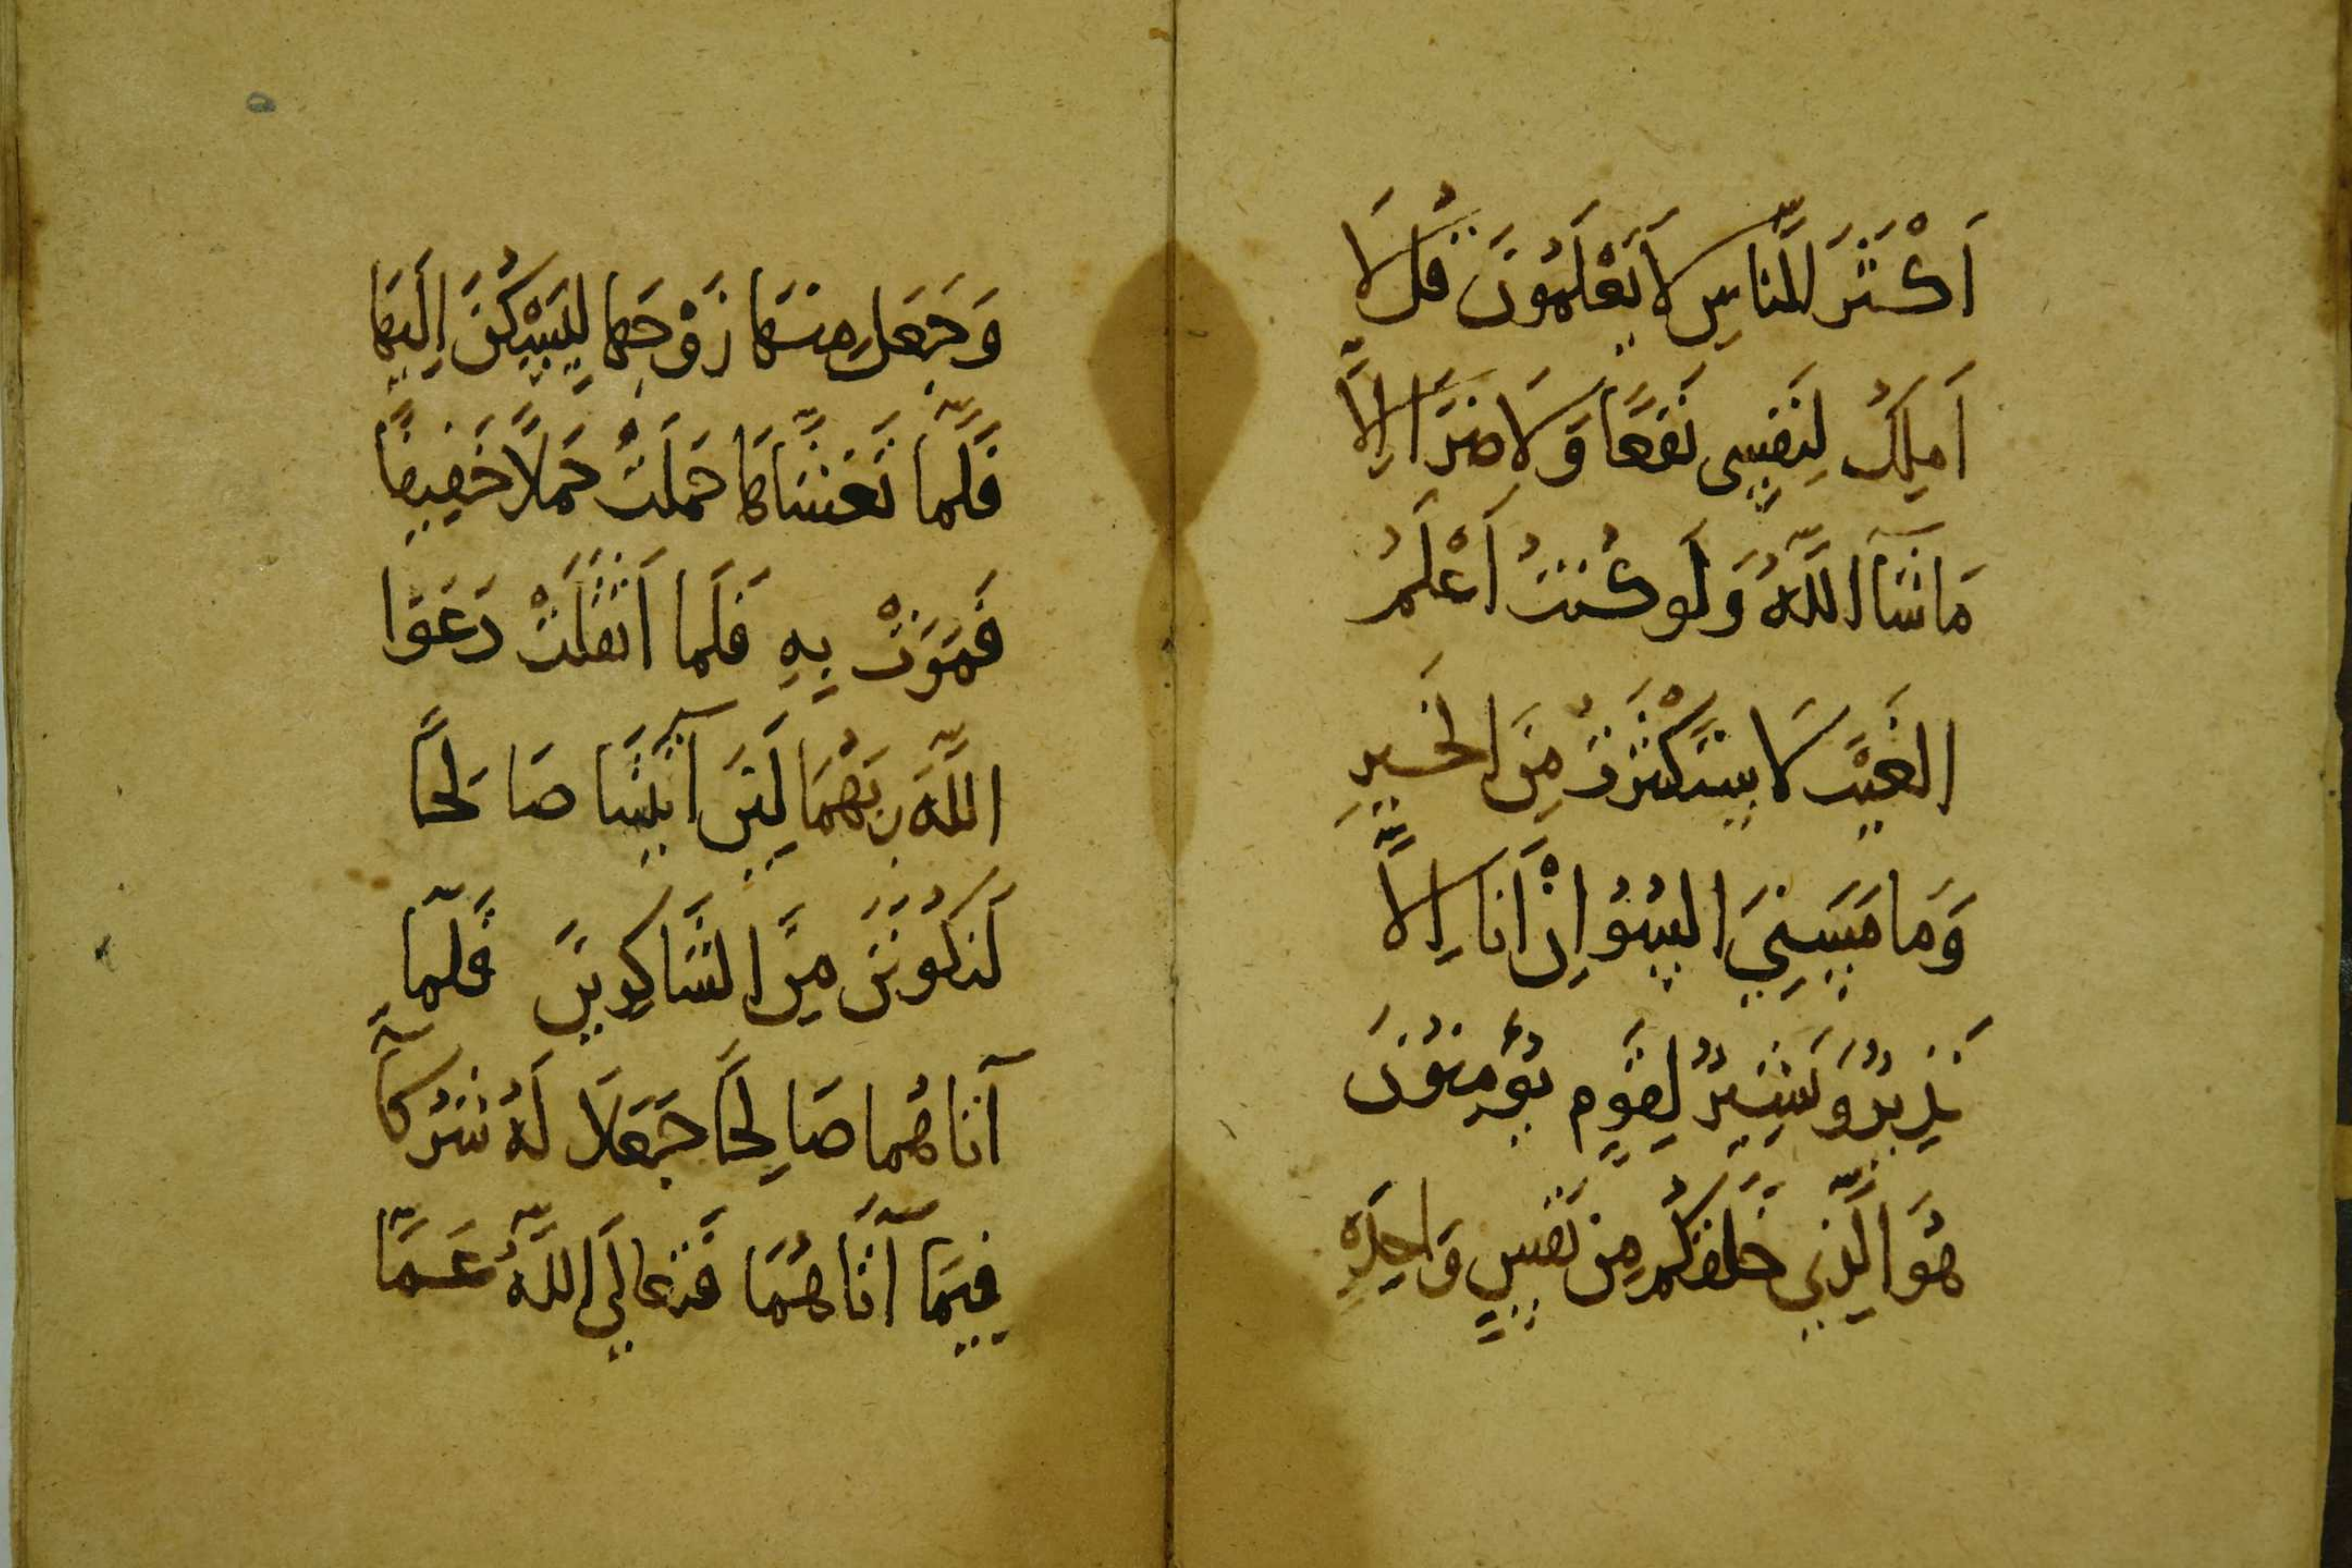 اَكْثَرَ النَّاسِ لَا يَعْلَمُونَ قُل لَا
اَمْلِكُ لِنَفْسِى نَفْعًا وَلَا ضَرًّا اِلَّا
مَا شَآ اللَّهُ وَلَو كُنتُ اَعْلَمُ
الغَيْبَ لَا سْتَكْثَرْتُ مِنَ الخَيْرِ
وَمَا مَسَّنِيَ السُّوُ اِنْ اَنَا اِلَّا
نَذِيرٌ وَبَشِيرٌ لِقَوْمٍ يُؤْمِنُونَ
هُوَ الَّذِي خَلَقَكُم مِن نَفْسٍ وَاحِدَةٍ
وَجَعَلَ مِنهَا زَوْجَها لِيَسْكُنَ اِلَيهَا
فَلَمَّا تَغَشَّاهَا حَمَلَتْ حَملاً خَفِيفًا
فَمَرَّتْ بِهِ فَلَما اَثْقَلَتْ دَعَوَا
اللَّهَ رَبَّهُمَا لَئِن آتَيْتَنَا صَالِحًا
لَنَكُونَنَّ مِنَ الشَّاكِرِينَ فَلَمَّا
آتَاهُما صَالِحًا جَعَلَا لَهُ شُرَكَآ
فِيمَآ آتَاهُمَا فَتَعَالَى اللَّهُ عَمَّا